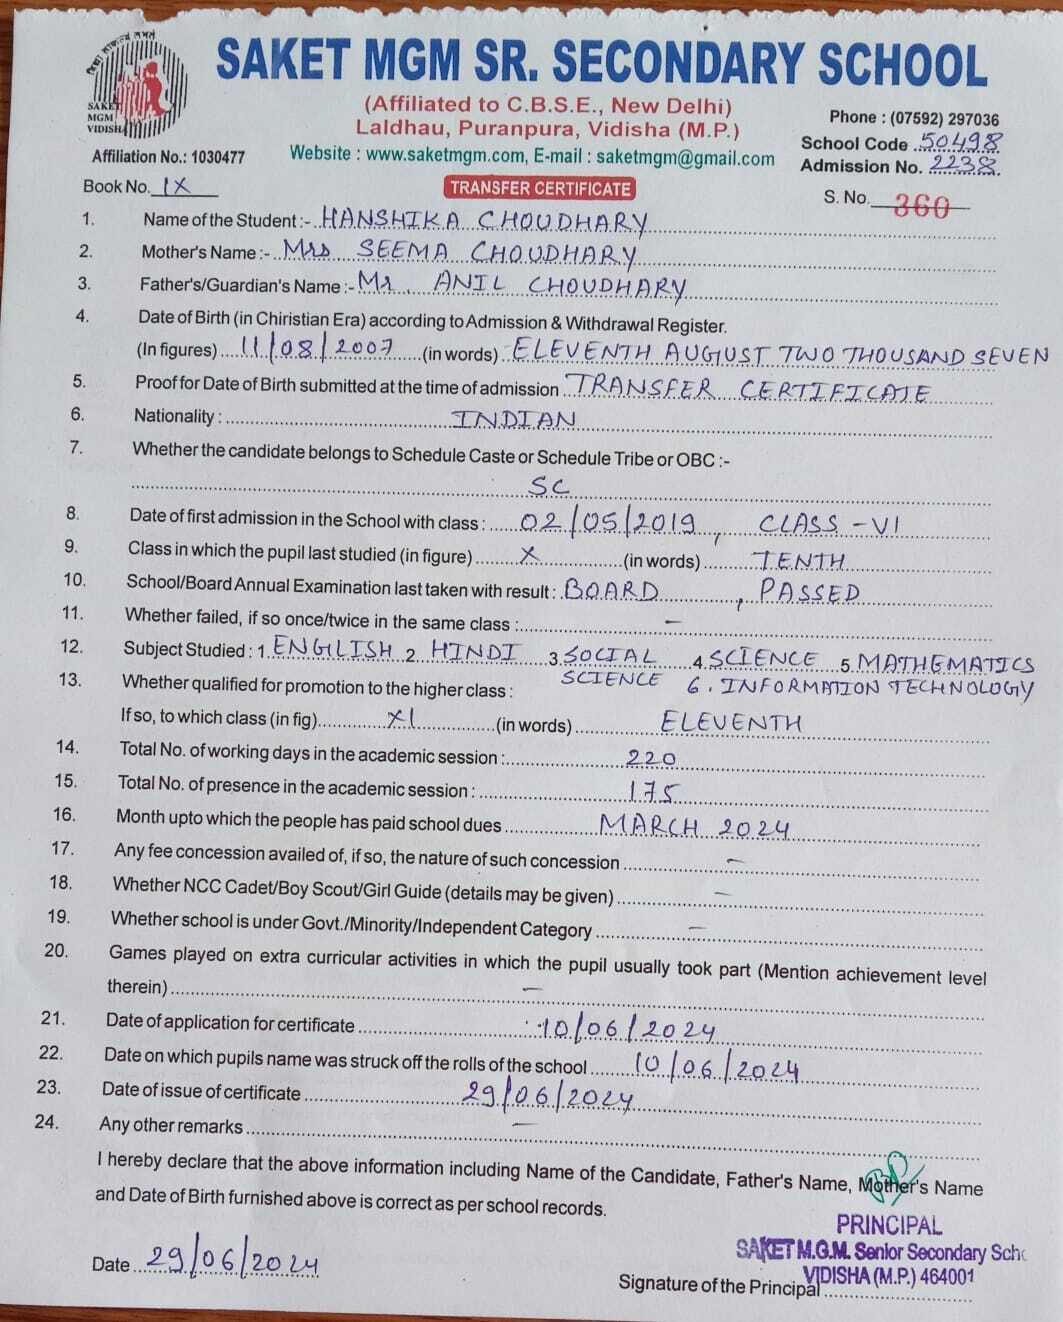 SAKET MGM SR. SECONDARY SCHOOL
SAKET
MGM
VIDISHA
(Affiliated to C.B.S.E., New Delhi)
Laldhau, Puranpura, Vidisha (M.P.)
Phone : (07592) 297036
School Code 50498
Affiliation No.: 1030477
Website : www.saketmgm.com, E-mail : saketmgm@gmail.com
Admission No. 2238
Book No. IX
TRANSFER CERTIFICATE
S. No. 360
1. Name of the Student :- HANSHIKA CHOUDHARY
2. Mother's Name :- Mrs SEEMA CHOUDHARY
3. Father's/Guardian's Name :- Mr. ANIL CHOUDHARY
4. Date of Birth (in Chiristian Era) according to Admission & Withdrawal Register.
(In figures) 11/08/2007 (in words) ELEVENTH AUGUST TWO THOUSAND SEVEN
5. Proof for Date of Birth submitted at the time of admission TRANSFER CERTIFICATE
6. Nationality : INDIAN
7. Whether the candidate belongs to Schedule Caste or Schedule Tribe or OBC :-
SC
8. Date of first admission in the School with class : 02/05/2019, CLASS -VI
9. Class in which the pupil last studied (in figure) X (in words) TENTH
10. School/Board Annual Examination last taken with result : BOARD, PASSED
11. Whether failed, if so once/twice in the same class : -
12. Subject Studied : 1. ENGLISH 2. HINDI 3. SOCIAL 4. SCIENCE 5. MATHEMATICS
SCIENCE 6. INFORMATION TECHNOLOGY
13. Whether qualified for promotion to the higher class :
If so, to which class (in fig) XI (in words) ELEVENTH
14. Total No. of working days in the academic session : 220
15. Total No. of presence in the academic session : 175
16. Month upto which the people has paid school dues MARCH 2024
17. Any fee concession availed of, if so, the nature of such concession -
18. Whether NCC Cadet/Boy Scout/Girl Guide (details may be given) -
19. Whether school is under Govt./Minority/Independent Category -
20. Games played on extra curricular activities in which the pupil usually took part (Mention achievement level
therein) -
21. Date of application for certificate 10/06/2024
22. Date on which pupils name was struck off the rolls of the school 10/06/2024
23. Date of issue of certificate 29/06/2024
24. Any other remarks -
I hereby declare that the above information including Name of the Candidate, Father's Name, Mother's Name
and Date of Birth furnished above is correct as per school records.
PRINCIPAL
SAKET M.G.M. Senior Secondary Scho
VIDISHA (M.P.) 464001
Date 29/06/2024
Signature of the Principal